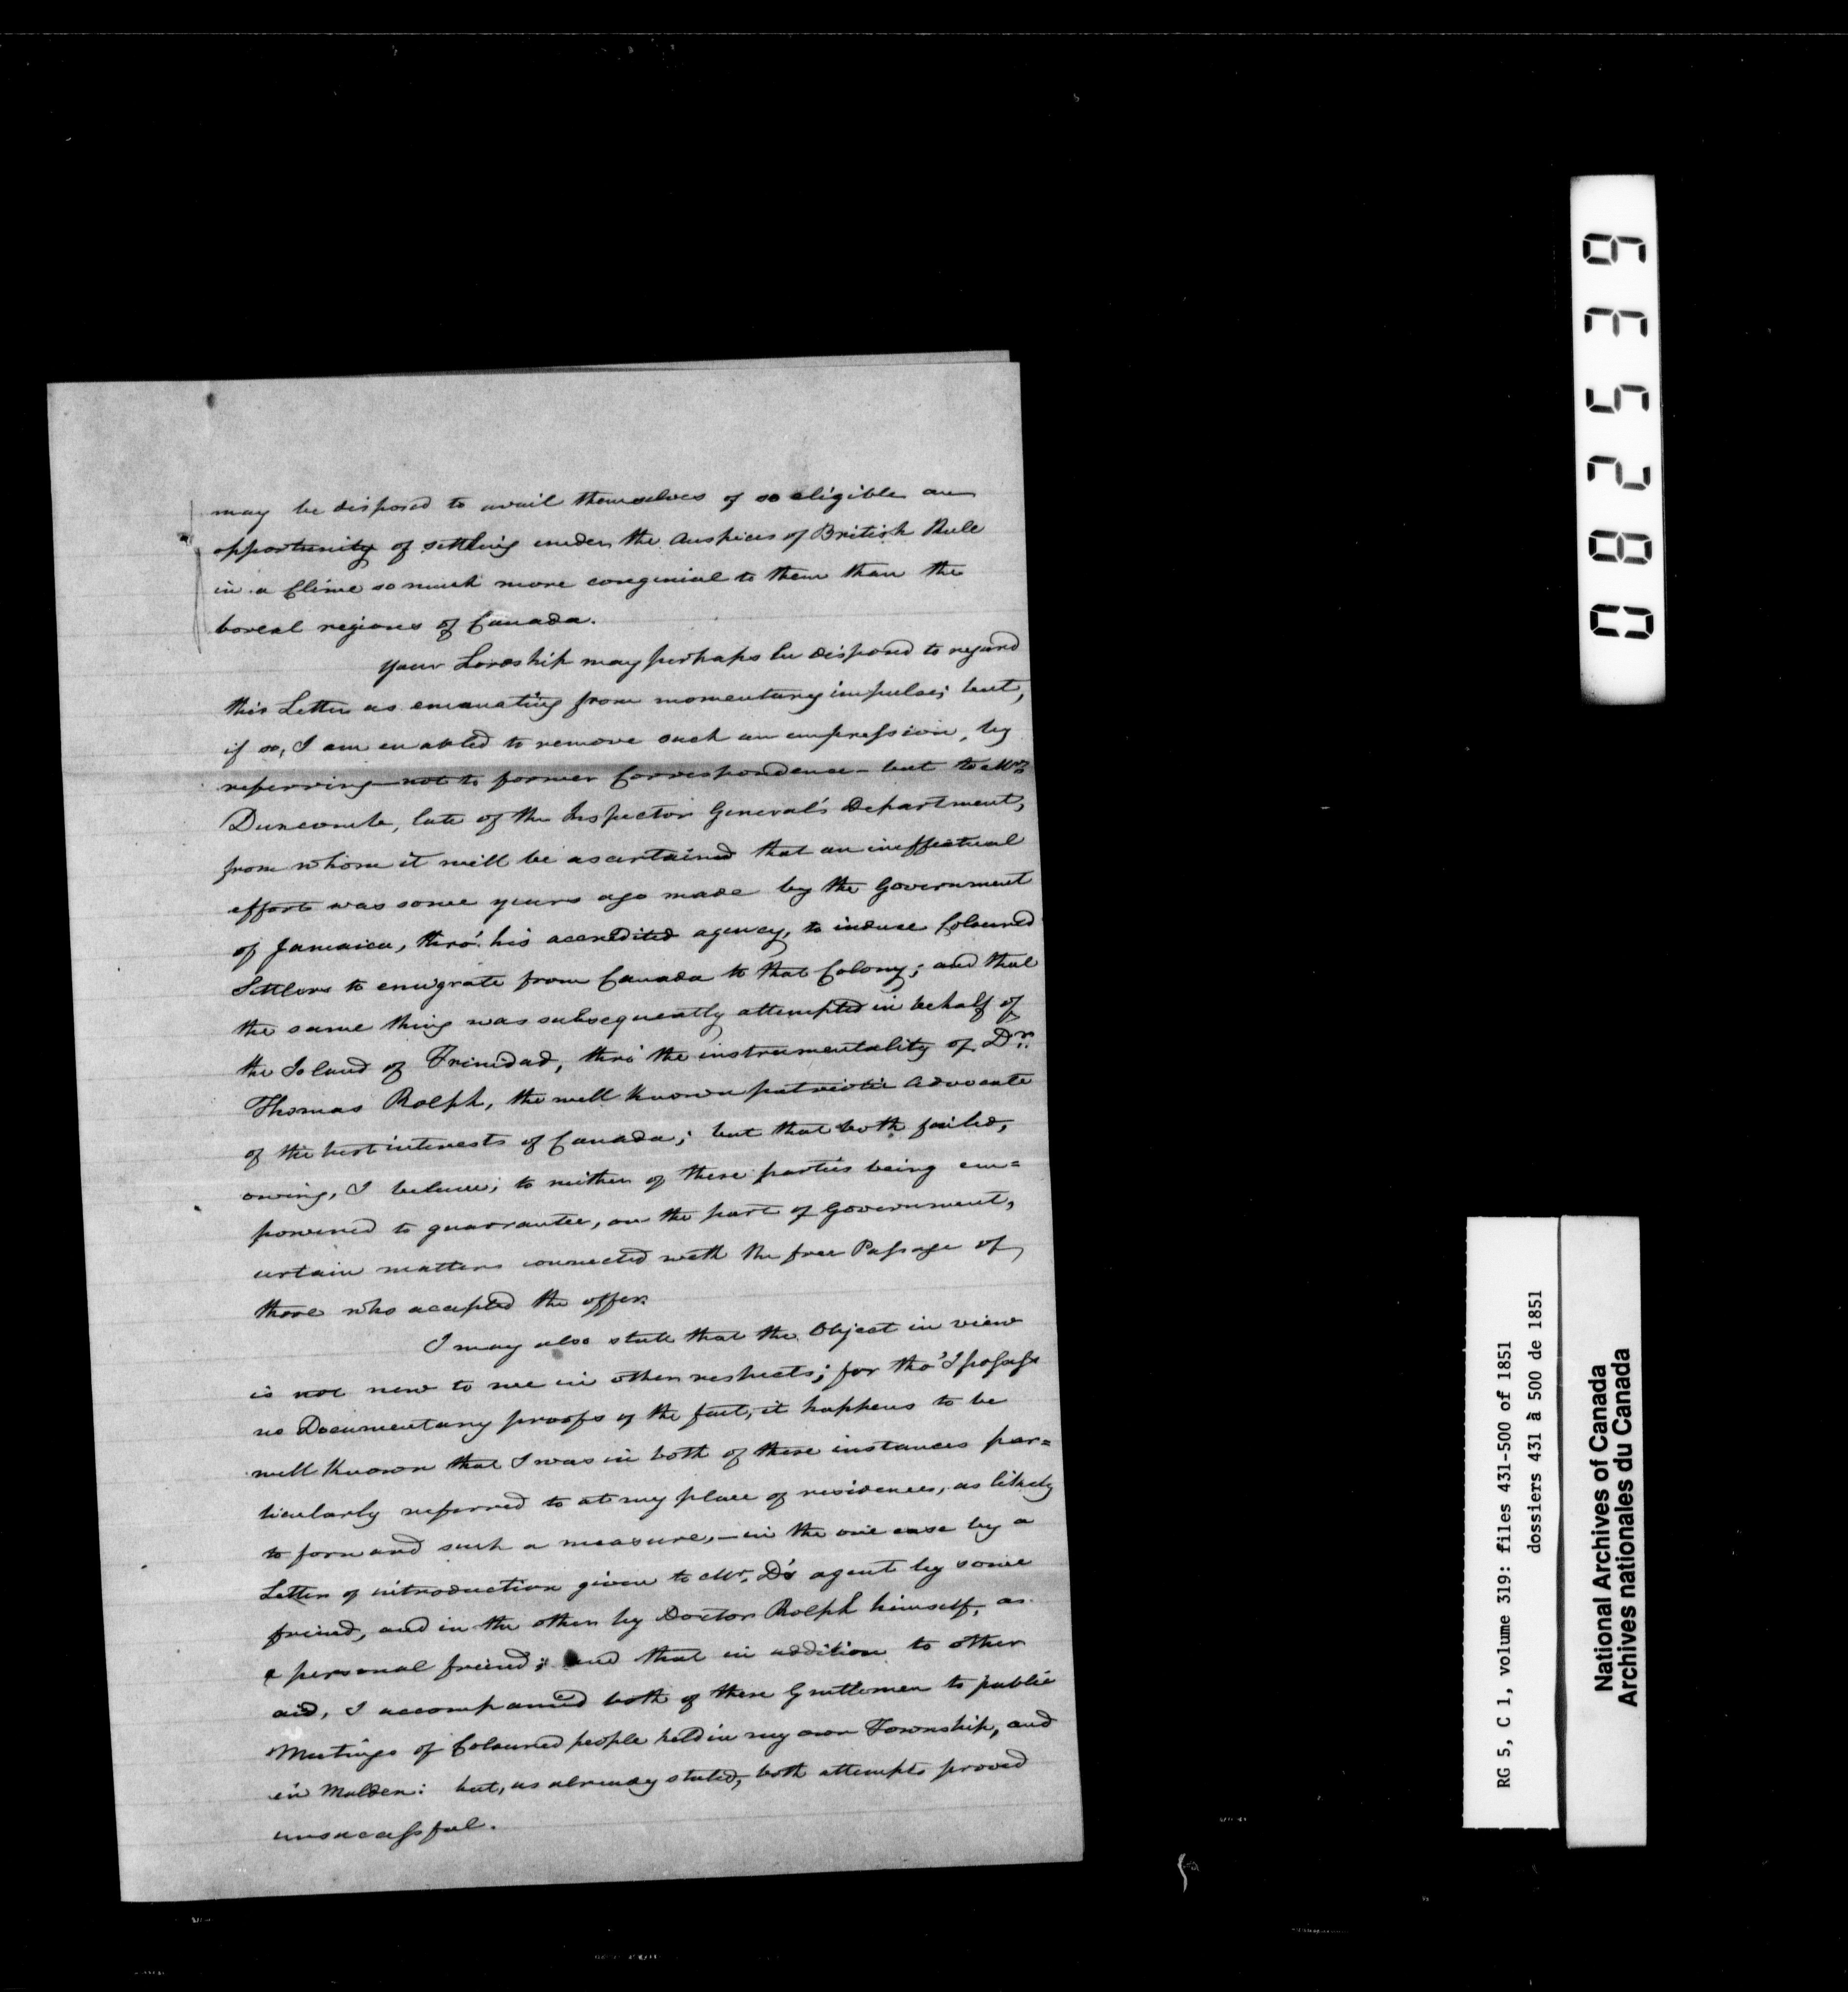 may be disposed to avail themselves of so eligible an
opportunity of settling under the Auspices of British Rule
in a Clime so much more congenial to them than the
boreal regions of Canada.
Your Lordship may perhaps be disposed to regard
this Letter as emanating from momentary impulse; but,
if so, I am enabled to remove such an impression, by
referring—not to former Correspondence—but to Mr.
Duncombe, late of the Inspector General's Department,
from whom it will be ascertained that an ineffectual
effort was some years ago made by the Government
of Jamaica, thro' his accredited agency, to induce Coloured
Settlers to emigrate from Canada to that Colony; and that
the same thing was subsequently attempted in behalf of
the Island of Trinidad, thro' the instrumentality of Dr.
Thomas Rolph, the well known patriotic advocate
of the best interests of Canada; but that both failed,
owing, I believe, to neither of these parties being em=
powered to guarrantee, on the part of Government,
certain matters connected with the free Passage of
those who accepted the offer.
I may also state that the Object in view
is not new to me in other respects; for tho' I possess
no Documentary proofs of the fact, it happens to be
well known that I was in both of these instances par=
ticularly referred to at my place of residence, as likely
to forward such a measure,—in the one case by a
Letter of introduction given to Mr. D's agent by some
friend, and in the other by Doctor Rolph himself, as
a personal friend; and that in addition to other
aid, I accompanied both of these Gentlemen to public
Meetings of Coloured people held in my own Township, and
in Malden: but, as already stated, both attempts proved
unsuccessful.
082539
RG 5, C 1, volume 319: files 431-500 of 1851
dossiers 431 à 500 de 1851
National Archives of Canada
Archives nationales du Canada